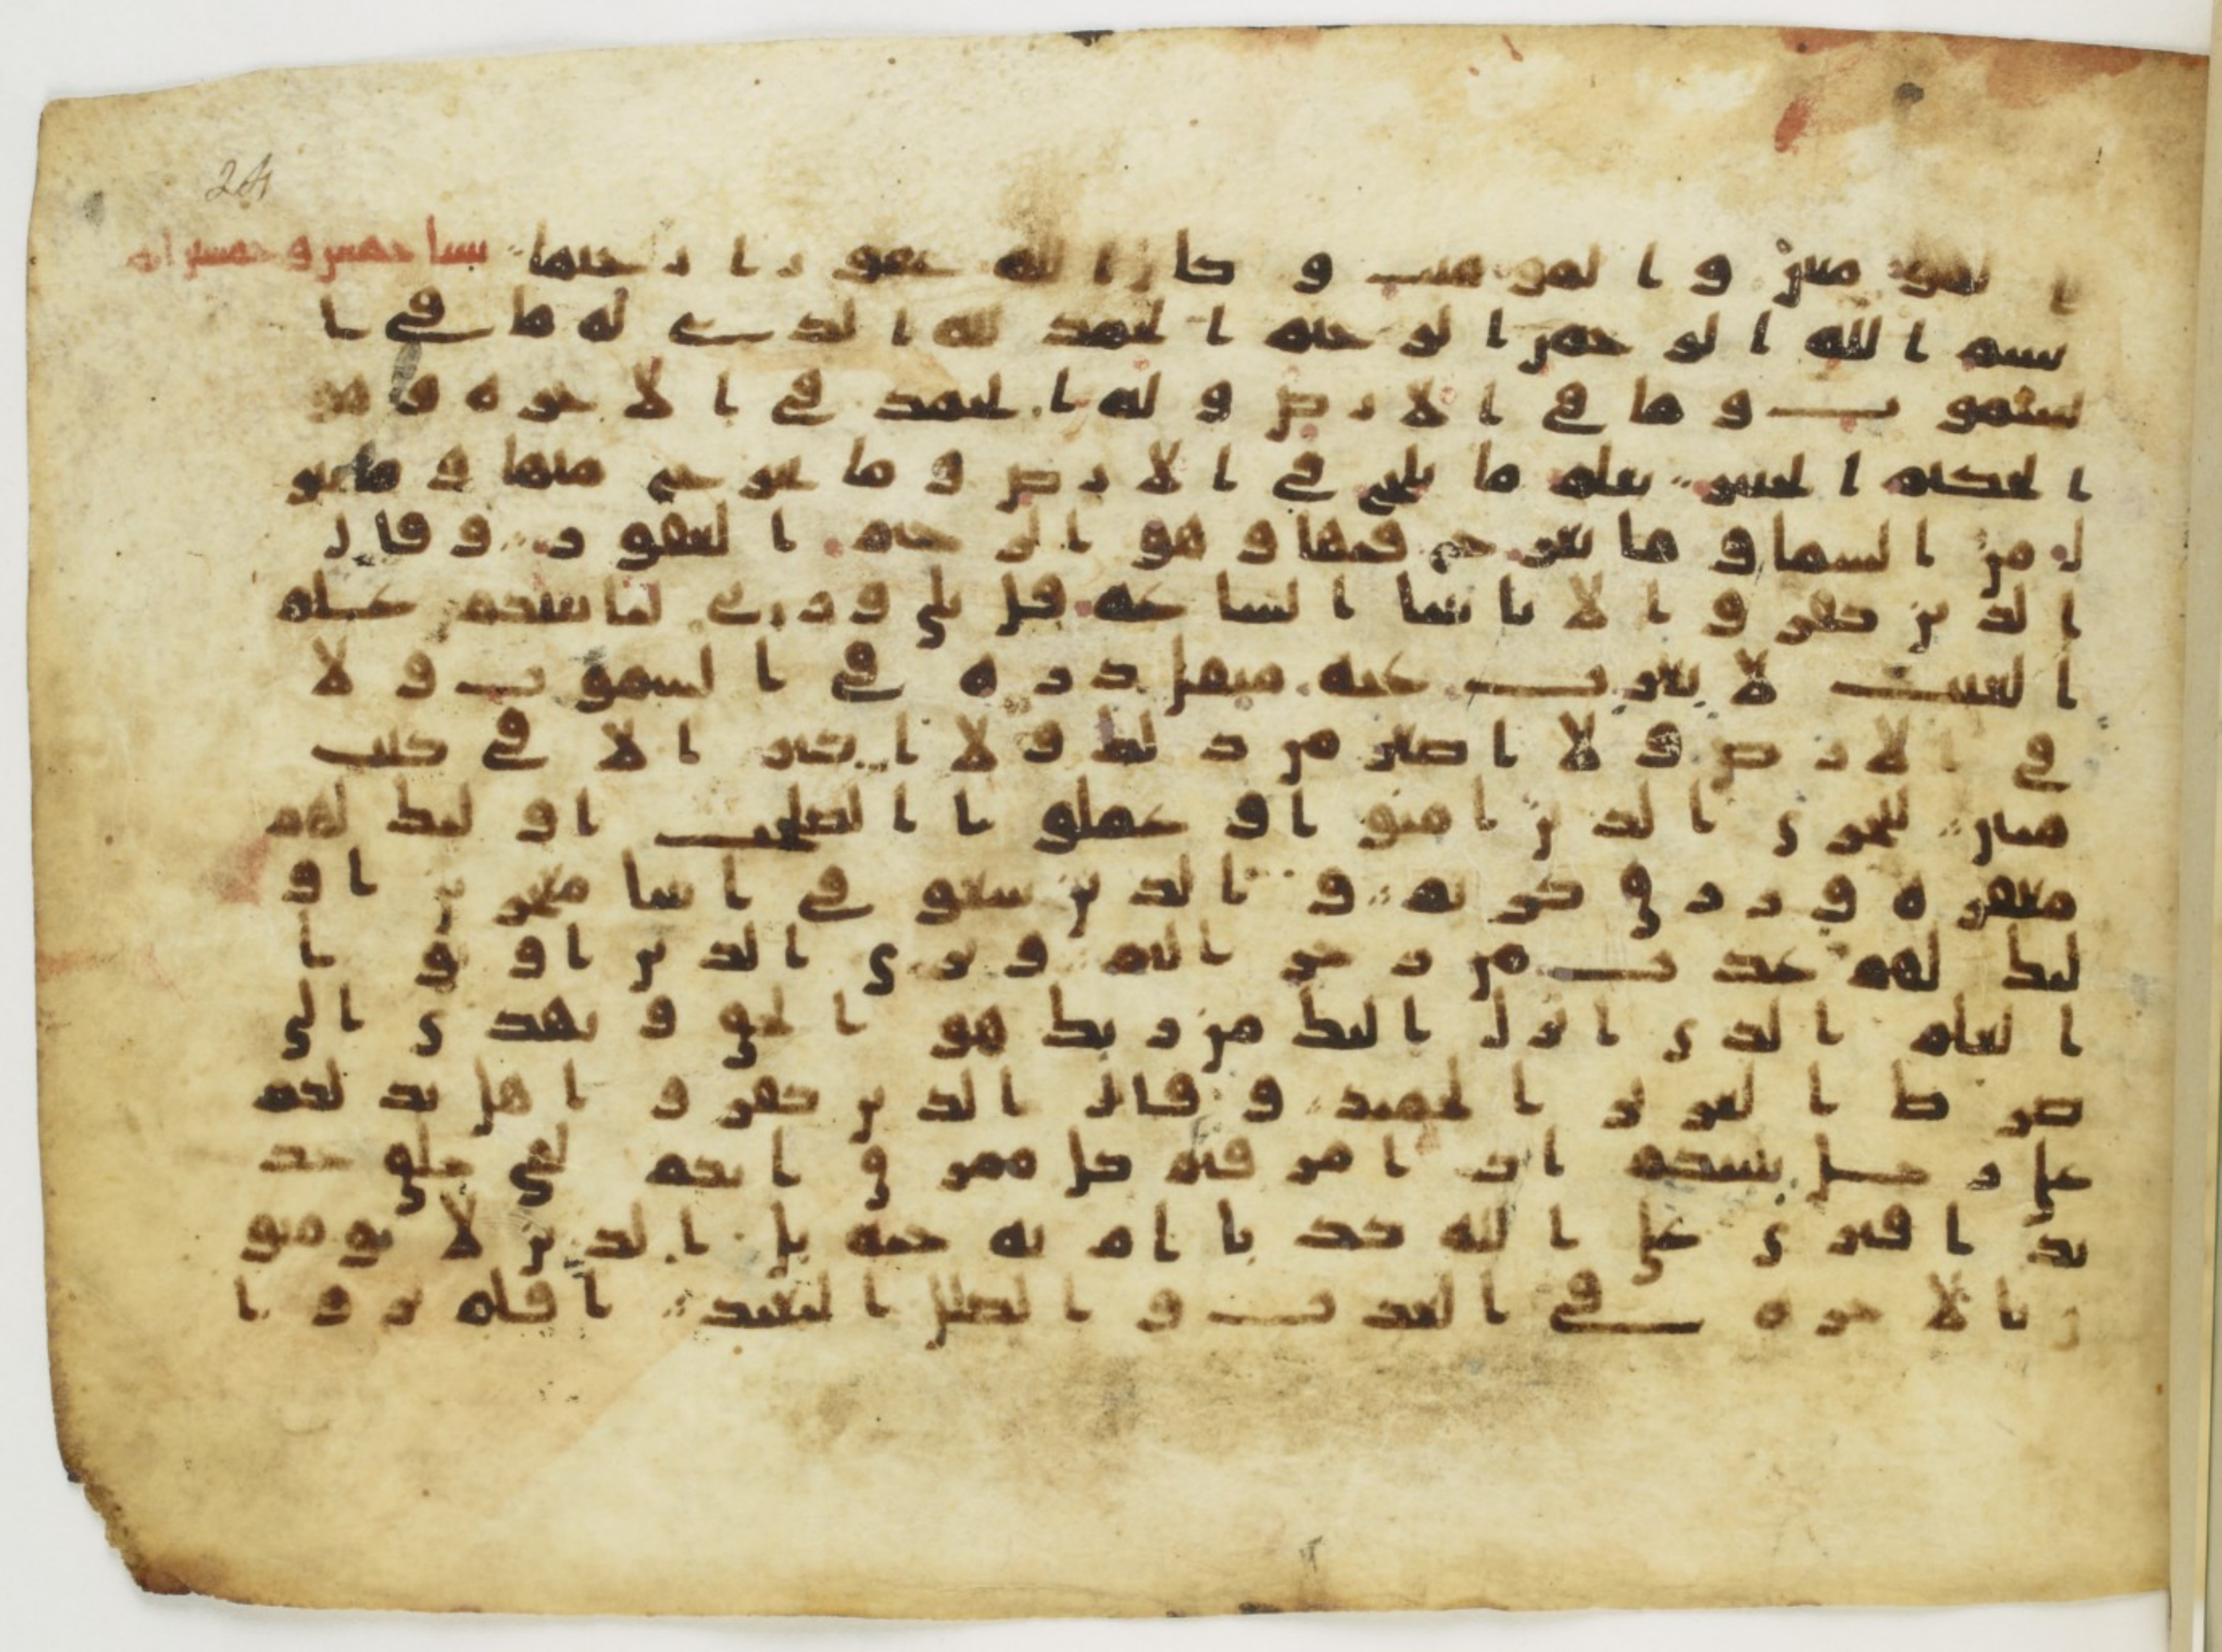 لمومنىں و المومنت و کاں الله عفو ر ا ر حىما سبا خمس و خمسوں ايه
بسم ا لله ا لر حمں ا لر حيم ا لحمد لله ا لذ ے له ما في ا
لسمو ت و ما في ا لا ر ض و له ا لحمد في ا لا خر ه و هو
ا لحکيم ا لخبير يعلم ما يلج في ا لا ر ض و ما يخر ج منها و ما ينز
ل مں ا لسما و ما يعر ج فيها و هو ا لر حيم ا لغفو ر و قا ل
ا لذ يں کفر و ا لا تا تينا ا لسا عه قل بلى و ر بے لتا تينکم علم
ا لغيب لا يعز ب عنه مثقل ذ ر ه في ا لسمو ت و لا
في ا لا ر ض و لا ا صغر مں ذ لک و لا ا کبر ا لا في کتب
مبيں ليجز ى ا لذ يں ا منو ا و عملو ا ا لصلحت ا و لئک لهم
مغفر ه و ر ز ق کر يم و ا لذ يں سعو في ا يتنا معجز يں ا و
لئک لهم عذ ب مں ر جز ا ليم و ير ى ا لذ يں ا و تو ا
ا لعلم ا لذ ى ا نز ل ا ليک مں ر بک هو ا لحق و يهد ى ا لى
صر ط ا لعز يز ا لحميد و قا ل ا لذ يں کفر و ا هل ند لکم
على ر جل ينبئکم ا ذ ا مز قتم کل ممز ق ا نکم لفي خلق جد
يد ا فتر ى على ا لله کذ با ا م به جنه بل ا لذ يں لا يو منو
ں با لا خر ه في ا لعذ ب و ا لضلل ا لبعيد ا فلم ير و ا
24